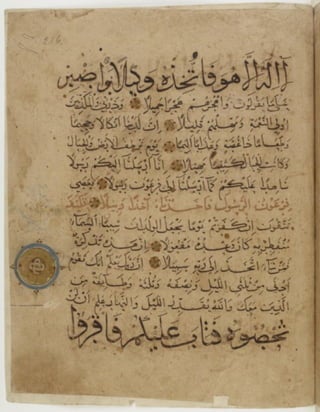 لَا إِلَهَ إِلَّا هُوَ فَاتَّخِذْهُ وَكِيلًا وَاصْبِرْ
عَلَى مَا يَقُولُونَ وَاهْجُرْهُمْ هَجْرًا جَمِيلًا وَذَرْنِي وَالْمُكَذِّبِينَ
أُولِي النَّعْمَةِ وَمَهِّلْهُمْ قَلِيلًا إِنَّ لَدَيْنَا أَنْكَالًا وَجَحِيمًا
وَطَعَامًا ذَا غُصَّةٍ وَعَذَابًا أَلِيمًا يَوْمَ تَرْجُفُ الْأَرْضُ وَالْجِبَالُ
وَكَانَتِ الْجِبَالُ كَثِيبًا مَهِيلًا إِنَّا أَرْسَلْنَا إِلَيْكُمْ رَسُولًا
شَاهِدًا عَلَيْكُمْ كَمَا أَرْسَلْنَا إِلَى فِرْعَوْنَ رَسُولًا فَعَصَى
فِرْعَوْنُ الرَّسُولَ فَأَخَذْنَاهُ أَخْذًا وَبِيلًا فَكَيْفَ
تَتَّقُونَ إِنْ كَفَرْتُمْ يَوْمًا يَجْعَلُ الْوِلْدَانَ شِيبًا السَّمَاءُ
مُنْفَطِرٌ بِهِ كَانَ وَعْدُهُ مَفْعُولًا إِنَّ هَذِهِ تَذْكِرَةٌ
فَمَنْ شَاءَ اتَّخَذَ إِلَى رَبِّهِ سَبِيلًا إِنَّ رَبَّكَ يَعْلَمُ أَنَّكَ تَقُومُ
أَدْنَى مِنْ ثُلُثَيِ اللَّيْلِ وَنِصْفَهُ وَثُلُثَهُ وَطَائِفَةٌ مِنَ
الَّذِينَ مَعَكَ وَاللَّهُ يُقَدِّرُ اللَّيْلَ وَالنَّهَارَ عَلِمَ أَنْ لَنْ
تُحْصُوهُ فَتَابَ عَلَيْكُمْ فَاقْرَءُوا